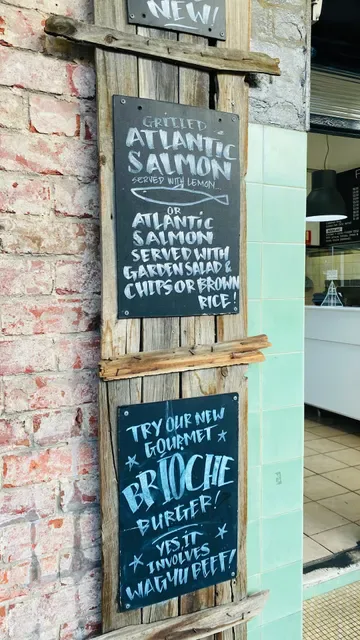 NEW!
GRILLED
ATLANTIC
SALMON
SERVED WITH LEMON
OR
ATLANTIC
SALMON
SERVED WITH
GARDEN SALAD &
CHIPS OR BROWN
RICE!
TRY OUR NEW
GOURMET
BRIOCHE
BURGER!
YES IT
INVOLVES
WAGYU BEEF!